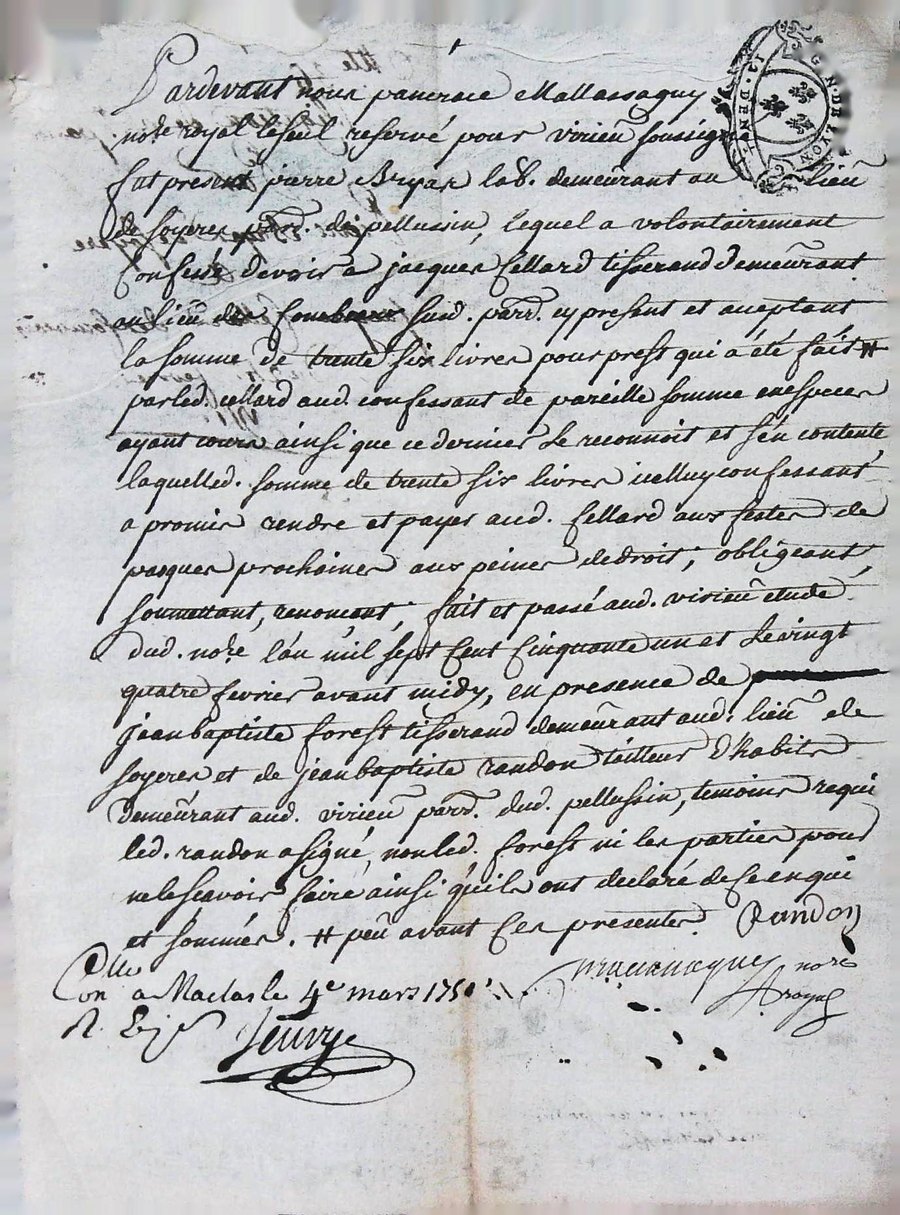 Pardevant nous pancrace Mallassagny
not.re royal le seul reservé pour virieu soussigné
fut present pierre Bryas lab. demeurant au lieu
de soyeres parr. de pellussin, lequel a volontairement
Confessé devoir a jacques Cellard tisserand demeurant
au lieu de susd. parr. cy present et aceptant
la somme de trente six livres pour prest qui a été fait #
par led. cellard aud. confessant de pareille somme en especes
ayant cours ainsi que ce dernier le reconnoit et s'en contente
laquelled. somme de trente six livres icelluy confessant
a promis rendre et payer aud. Cellard aux festes de
pasques prochaines aux peines de droit, obligeant,
soumettant, renoncant; fait et passé aud. virieu etude
dud. not.re l'an mil sept Cent Cinquante un et le vingt
quatre fevrier avant midy, en presence de
jean baptiste forest tisserand demeurant aud. lieu de
soyeres et de jean baptiste randon tailleur d'habits
demeurant aud. virieu parr. dud. pellussin, temoins requis
led. randon a signé, non led. forest ni les parties pour
ne le scavoir faire ainsi qu'ils ont declaré de ce enquis
et sommés. # peu avant Ces presentes. Randon
not.re
royal
Con.lle a Maclas le 4e mars 1751
R.
13. DEN.
GN. DE LYON